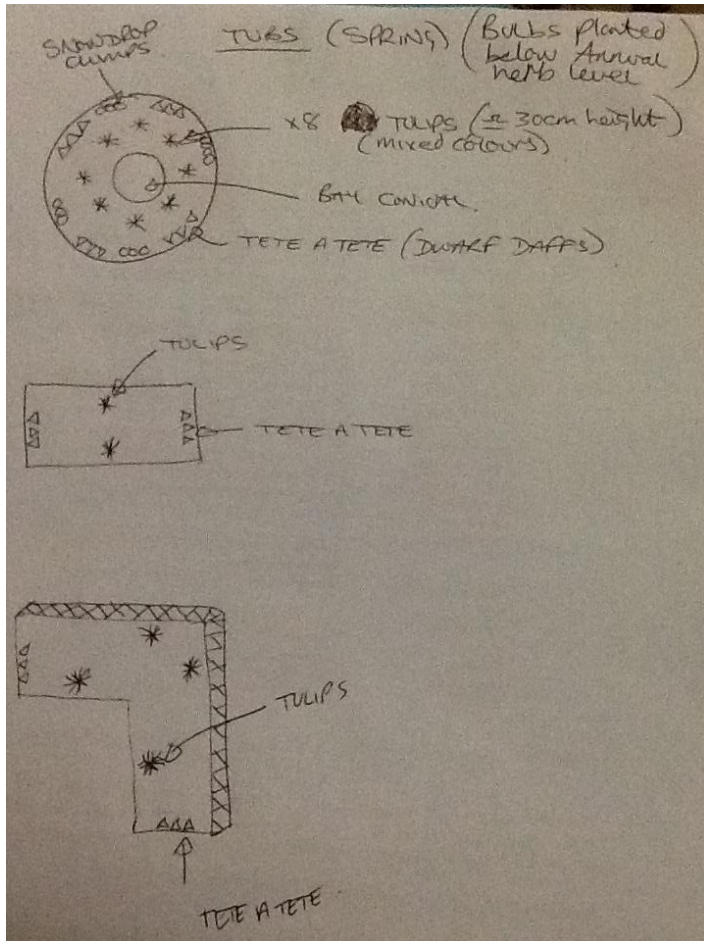 TUBS (SPRING) (Bulbs planted
below Annual
herb level)
SNOWDROP
CLUMPS
x8 TULIPS (≏ 30cm height)
(mixed colours)
BAY CONICAL.
TETE A TETE (DWARF DAFFS)
TULIPS
TETE A TETE
TULIPS
TETE A TETE